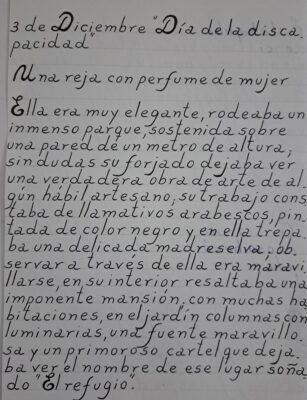 3 de Diciembre "Día de la disca
pacidad"
Una reja con perfume de mujer
Ella era muy elegante, rodeaba un
inmenso parque, sostenida sobre
una pared de un metro de altura,
sin dudas su forjado dejaba ver
una verdadera obra de arte de al
gún hábil artesano, su trabajo cons
taba de llamativos arabescos, pin_
tada de color negro y en ella trepa_
ba una delicada madreselva, ob_
servar a través de ella era maravi_
llarse, en su interior resaltaba una
imponente mansión, con muchas ha
bitaciones, en el jardín columnas con
luminarias, una fuente maravillo_
sa y un primoroso cartel que deja_
ba ver el nombre de ese lugar soña_
do "El refugio".